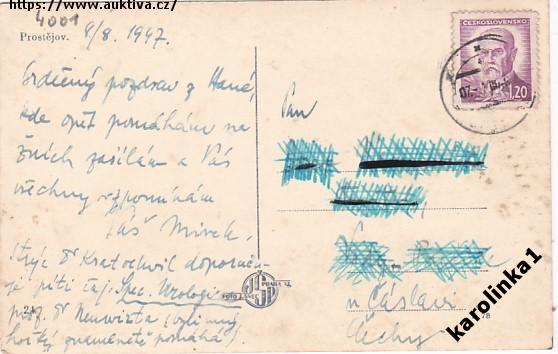 https://www.auktiva.cz/
4001
Prostějov. 8/8. 1947.
Srdečný pozdrav z Hané,
kde opět pomáhám na
žních zasílám a Vás
všechny vzpomínám
Váš Mirek.
Strýc Dr Kratochvil doporuču-
je píti čaj: Spec. Urologic
prof. Dr Neuwirta (bylinný
horký znamenitě pomáhá).
Pan
u Čáslavi
Čechy
ČESKOSLOVENSKO
1,20
FOTO J. PRAHA
karolinka1